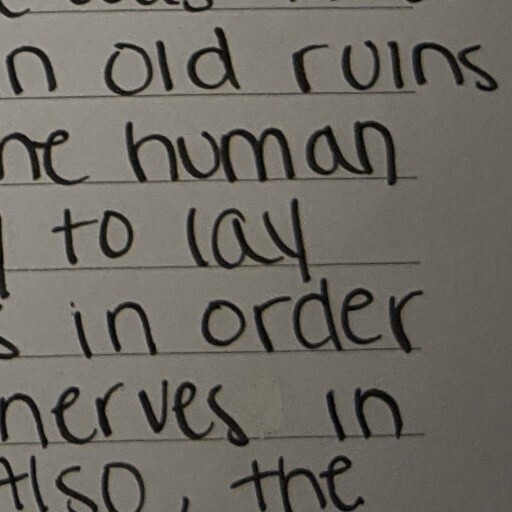 n old ruins
ne human
to lay
s in order
nerves in
Also, the